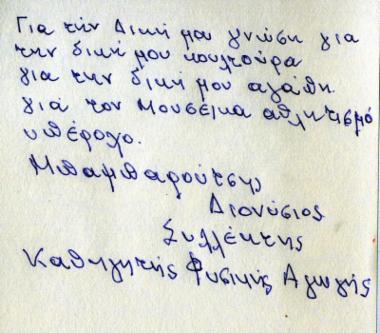 Για την Δική μου γνώση για
την δική μου κουλτούρα
για την δική μου αγάπη
για τον Μουσείκα αθλητισμό
υπέροχο.
Μπαμπαρούτσης
Διονύσιος
Συλλέκτης
Καθηγητής Φυσικής Αγωγής